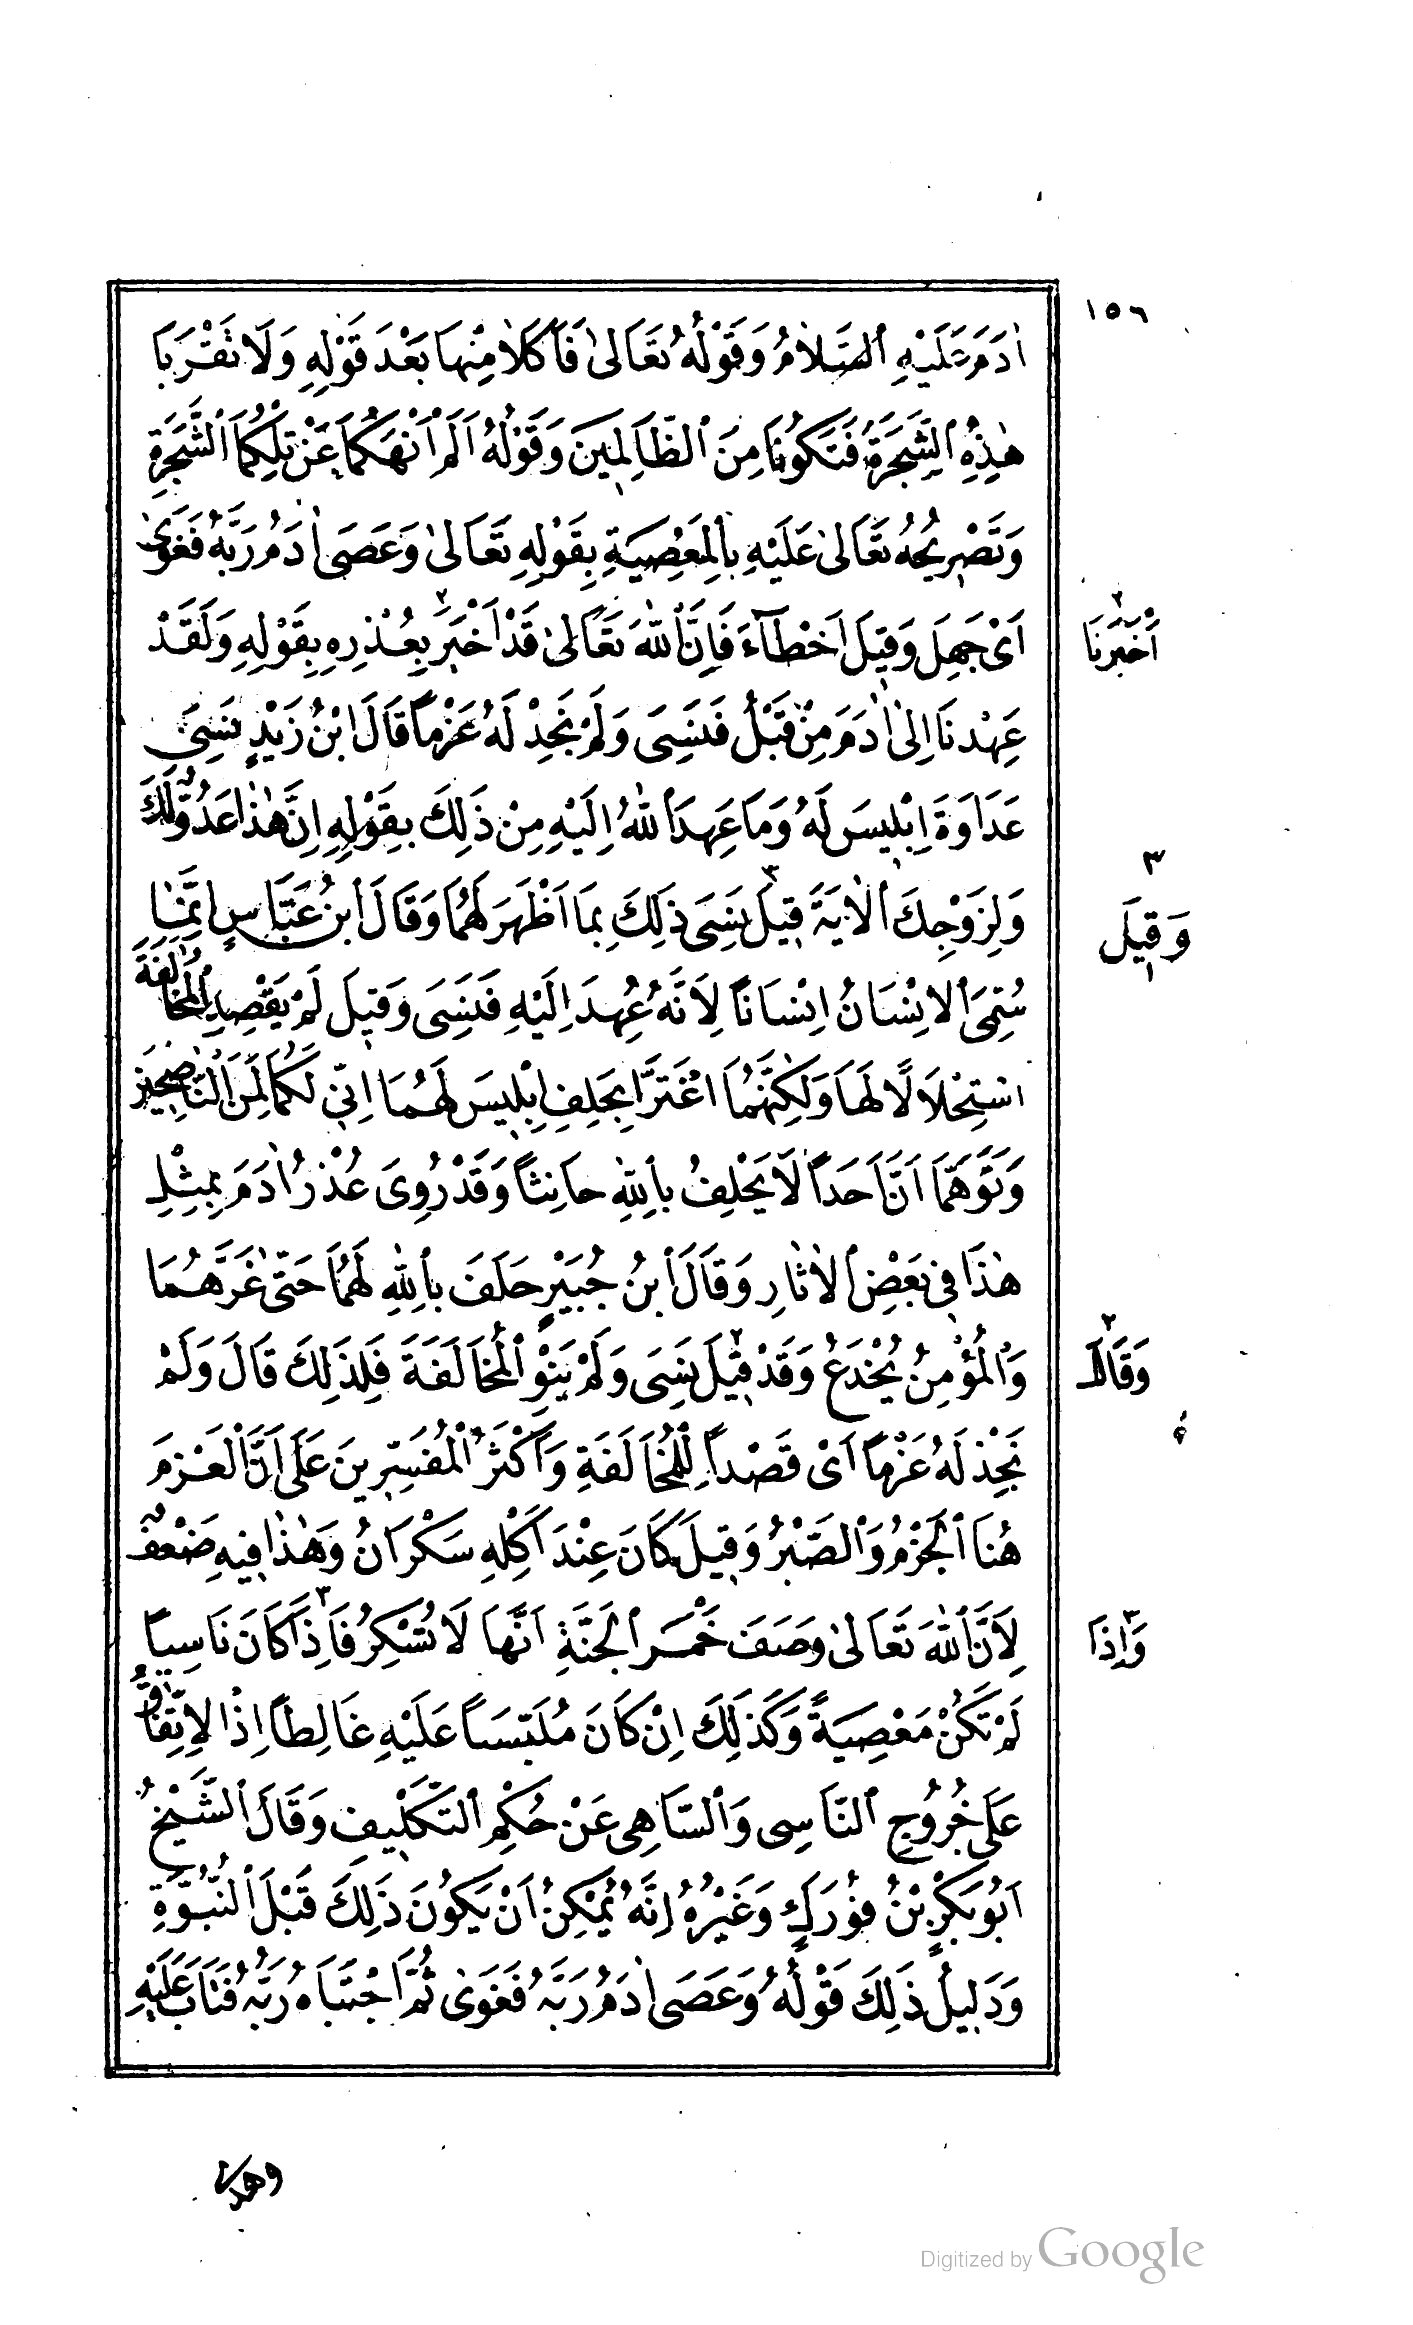 ١٥٦
اٰدَمَ عَلَيْهِ ٱلسَّلَامُ وَقَوْلُهُ تَعَالىٰ فَأَكَلَا مِنْهَا بَعْدَ قَوْلِهِ وَلَا تَقْرَبَا
هٰذِهِ ٱلشَّجَرَةَ فَتَكُونَا مِنَ ٱلظَّالِمِينَ وَقَوْلُهُ اَلَمْ اَنْهَكُمَا عَنْ تِلْكُمَا ٱلشَّجَرَةِ
وَتَصْرِيحُهُ تَعَالىٰ عَلَيْهِ بِالْمَعْصِيَةِ بِقَوْلِهِ تَعَالىٰ وَعَصَى اٰدَمُ رَبَّهُ فَغَوٰى
اَىْ جَهِلَ وَقِيلَ اَخْطَأَ فَاِنَّ ٱللّٰهَ تَعَالىٰ قَدْ اَخْبَرَ٢ بِعُذْرِهِ بِقَوْلِهِ وَلَقَدْ
٢ اَخْبَرَنَا
عَهِدْنَا اِلىٰ اٰدَمَ مِنْ قَبْلُ فَنَسِىَ وَلَمْ نَجِدْ لَهُ عَزْماً قَالَ ابْنُ زَيْدٍ نَسِىَ
عَدَاوَةَ اِبْلِيسَ لَهُ وَمَا عَهِدَ ٱللّٰهُ اِلَيْهِ مِنْ ذَلِكَ بِقَوْلِهِ اِنَّ هٰذَا عَدُوٌّ لَكَ
وَلِزَوْجِكَ ٱلْاٰيَةَ ٣ قِيلَ نَسِىَ ذَلِكَ بِمَا اَظْهَرَ لَهُمَا وَقَالَ ٱبْنُ عَبَّاسٍ اِنَّمَا
٣ وَقِيلَ
سُمِّىَ ٱلْاِنْسَانُ اِنْسَاناً لِاَنَّهُ عُهِدَ اِلَيْهِ فَنَسِىَ وَقِيلَ لَمْ يَقْصِدِ ٱلْمُخَالَفَةَ
اسْتِحْلَالًا لَهَا وَلٰكِنَّهُمَا اغْتَرَّا بِحَلِفِ اِبْلِيسَ لَهُمَا اِنِّى لَكُمَا لَمِنَ ٱلنَّاصِحِينَ
وَتَوَهَّمَا اَنَّ اَحَداً لَا يَحْلِفُ بِٱللّٰهِ حَانِثاً وَقَدْ رُوِىَ عُذْرُ اٰدَمَ بِمِثْلِ
هٰذَا فِى بَعْضِ ٱلْاٰثَارِ وَقَالَ ٱبْنُ جُبَيْرٍ حَلَفَ بِٱللّٰهِ لَهُمَا حَتّىٰ غَرَّهُمَا
وَٱلْمُؤْمِنُ يُخْدَعُ وَقَدْ قِيلَ٢ نَسِىَ وَلَمْ يَنْوِ ٱلْمُخَالَفَةَ فَلِذَلِكَ قَالَ وَلَمْ
٢ وَقَالَ
نَجِدْ لَهُ عَزْماً اَىْ قَصْداً لِلْمُخَالَفَةِ وَاَكْثَرُ ٱلْمُفَسِّرِينَ عَلَى اَنَّ ٱلْعَزْمَ
هُنَا ٱلْحَزْمُ وَٱلصَّبْرُ وَقِيلَ كَانَ عِنْدَ اَكْلِهِ سَكْرَانُ وَهٰذَا فِيهِ ضَعْفٌ
لِاَنَّ ٱللّٰهَ تَعَالىٰ وَصَفَ خَمْرَ ٱلْجَنَّةِ اَنَّهَا لَا تُسْكِرُ ٣ فَاِذَا كَانَ نَاسِياً
٣ وَاِذَا
لَمْ تَكُنْ مَعْصِيَةً وَكَذَلِكَ اِنْ كَانَ مُلَبَّساً عَلَيْهِ غَالِطاً اِذِ ٱلْاِتِّفَاقُ
عَلَى خُرُوجِ ٱلنَّاسِى وَٱلسَّاهِى عَنْ حُكْمِ ٱلتَّكْلِيفِ وَقَالَ ٱلشَّيْخُ
اَبُو بَكْرِ بْنُ فُورَكٍ وَغَيْرُهُ اِنَّهُ يُمْكِنُ اَنْ يَكُونَ ذَلِكَ قَبْلَ ٱلنُّبُوَّةِ
وَدَلِيلُ ذَلِكَ قَوْلُهُ وَعَصَى اٰدَمُ رَبَّهُ فَغَوٰى ثُمَّ اجْتَبَاهُ رَبُّهُ فَتَابَ عَلَيْهِ
وهدى
Digitized by Google